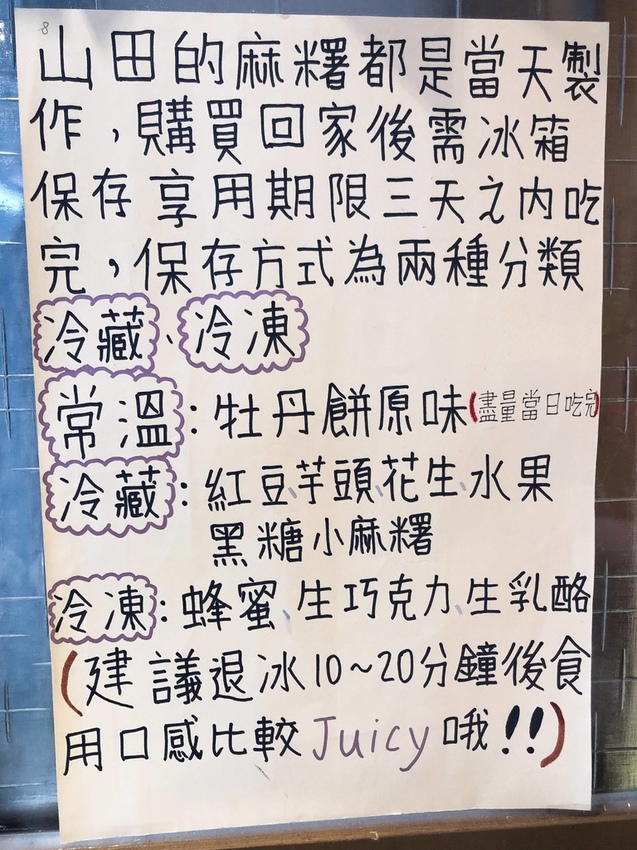 8
山田的麻糬都是當天製
作，購買回家後需冰箱
保存享用期限三天之內吃
完，保存方式為兩種分類
冷藏、冷凍
常溫：牡丹餅原味(盡量當日吃完)
冷藏：紅豆、芋頭、花生、水果
黑糖小麻糬
冷凍：蜂蜜、生巧克力、生乳酪
(建議退冰10~20分鐘後食
用口感比較Juicy哦!!)